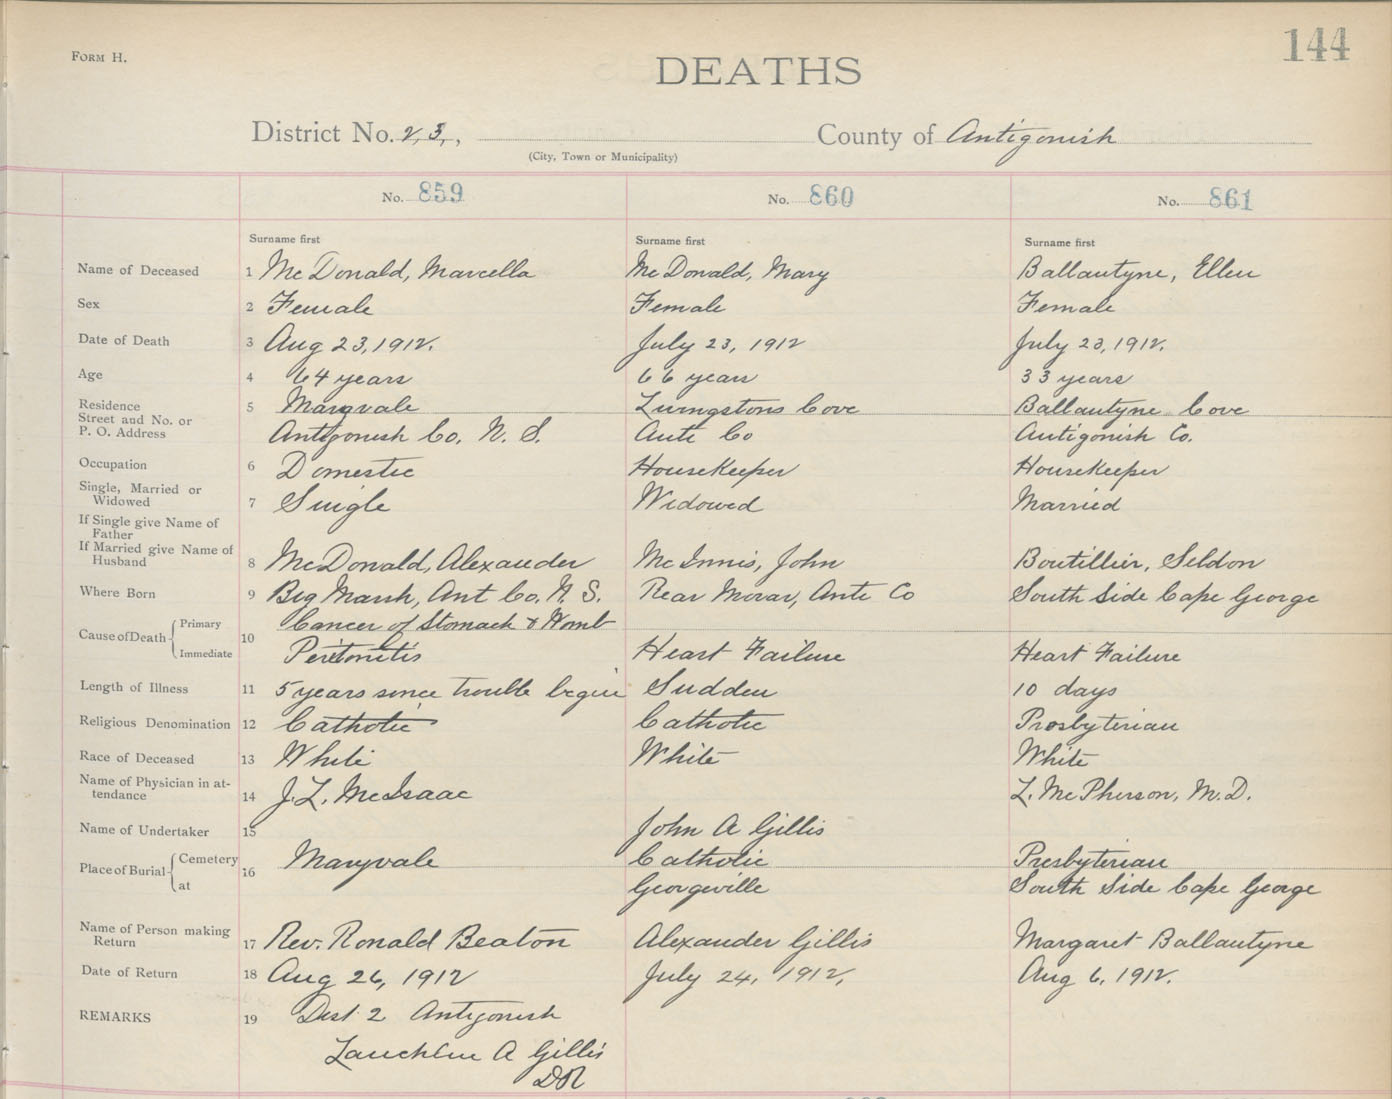 144
FORM H.
DEATHS
District No. 2, 3, , County of Antigonish
(City, Town or Municipality)
No. 859 No. 860 No. 861
Surname first Surname first Surname first
Name of Deceased 1 McDonald, Marcella McDonald, Mary Ballantyne, Ellen
Sex 2 Female Female Female
Date of Death 3 Aug 23, 1912. July 23, 1912 July 23, 1912.
Age 4 64 years 66 years 33 years
Residence 5 Maryvale Livingstons Cove Ballantyne Cove
Street and No. or
P. O. Address Antigonish Co. N. S. Anti Co Antigonish Co.
Occupation 6 Domestic Housekeeper Housekeeper
Single, Married or
Widowed 7 Single Widowed Married
If Single give Name of
Father
If Married give Name of
Husband 8 McDonald, Alexander McInnis, John Boutillier, Seldon
Where Born 9 Big Marsh, Ant Co. N. S. Rear Morar, Anti Co South Side Cape George
Cause of Death Primary 10 Cancer of Stomach & Womb
Immediate Peritonitis Heart Failure Heart Failure
Length of Illness 11 5 years since trouble begun Sudden 10 days
Religious Denomination 12 Catholic Catholic Presbyterian
Race of Deceased 13 White White White
Name of Physician in at-
tendance 14 J. L. McIsaac L. McPherson, M.D.
Name of Undertaker 15 John A Gillis
Place of Burial Cemetery 16 Maryvale Catholic Presbyterian
at Georgeville South Side Cape George
Name of Person making
Return 17 Rev. Ronald Beaton Alexander Gillis Margaret Ballantyne
Date of Return 18 Aug 26, 1912 July 24, 1912, Aug 6, 1912.
REMARKS 19 Dist 2 Antigonish
Lauchlin A Gillis
DR